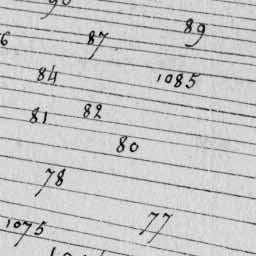 90
89
87
84
1085
82
81
80
78
77
1075